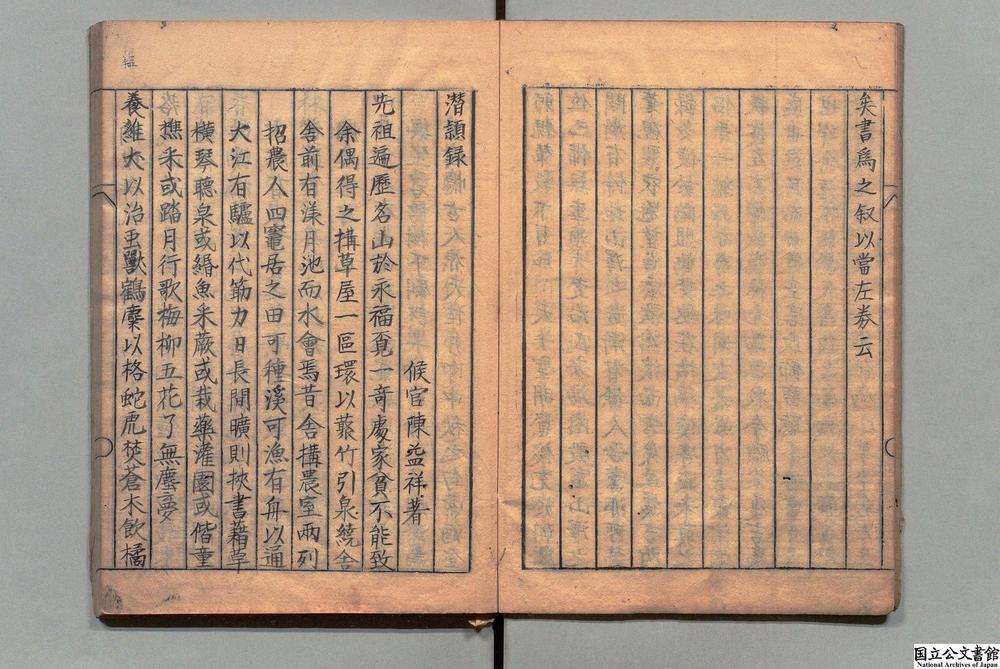 矣書爲之叙以當左券云
潛頴録
候官陳益祥著
先祖遍歷名山於永福覔一竒處家貧不能致
余偶得之搆草屋一區環以藂竹引泉繞舍
舍前有渼月池而水會焉昔舍搆農室兩列
招農人四竈居之田可種溪可漁有舟以通
大江有驢以代筋力日長間曠則挾書藉草
横琴聽泉或緡魚采蕨或栽藥灌園或偕童
樵采或踏月行歌梅柳五花了無塵夢
養雉犬以治䖝獸鶴麋以格蛇虎焚蒼朮飲橘
国立公文書館
National Archives of Japan